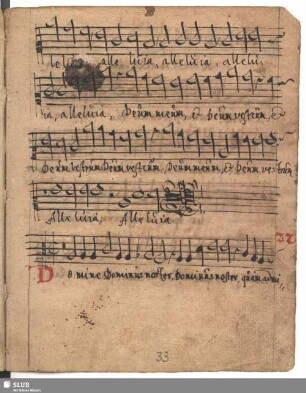 le luia, alle luia, alleluia, allelu
ia, alleluia, Deum meum, & Deum vestrum, &
Deum vestrum Deum vestrum, Deum meum, & Deum vestrum,
Alle luia, Alle luia.
32
Domine Dominus noster, Dominus noster, quam admi
33
SLUB
Wir führen Wissen.